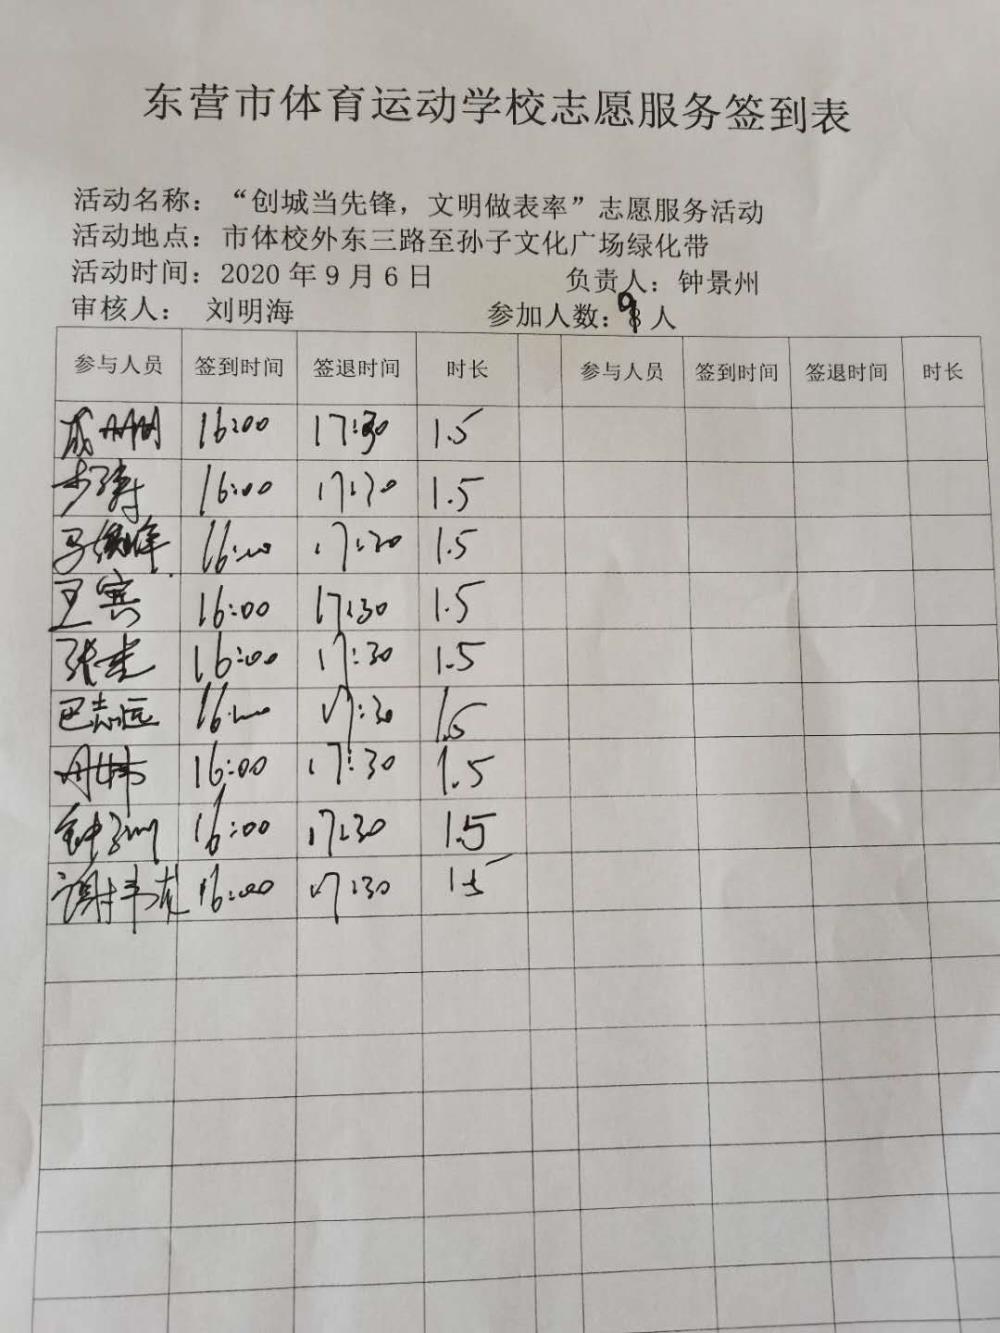 东营市体育运动学校志愿服务签到表
活动名称：“创城当先锋，文明做表率”志愿服务活动
活动地点：市体校外东三路至孙子文化广场绿化带
活动时间：2020 年 9 月 6 日 负责人：钟景州
审核人： 刘明海 参加人数：9 人
参与人员 签到时间 签退时间 时长 参与人员 签到时间 签退时间 时长
16:00 17:30 1.5
16:00 17:30 1.5
16:00 17:30 1.5
王宾 16:00 17:30 1.5
16:00 17:30 1.5
巴志远 16:00 17:30 1.5
16:00 17:30 1.5
16:00 17:30 1.5
16:00 17:30 1.5